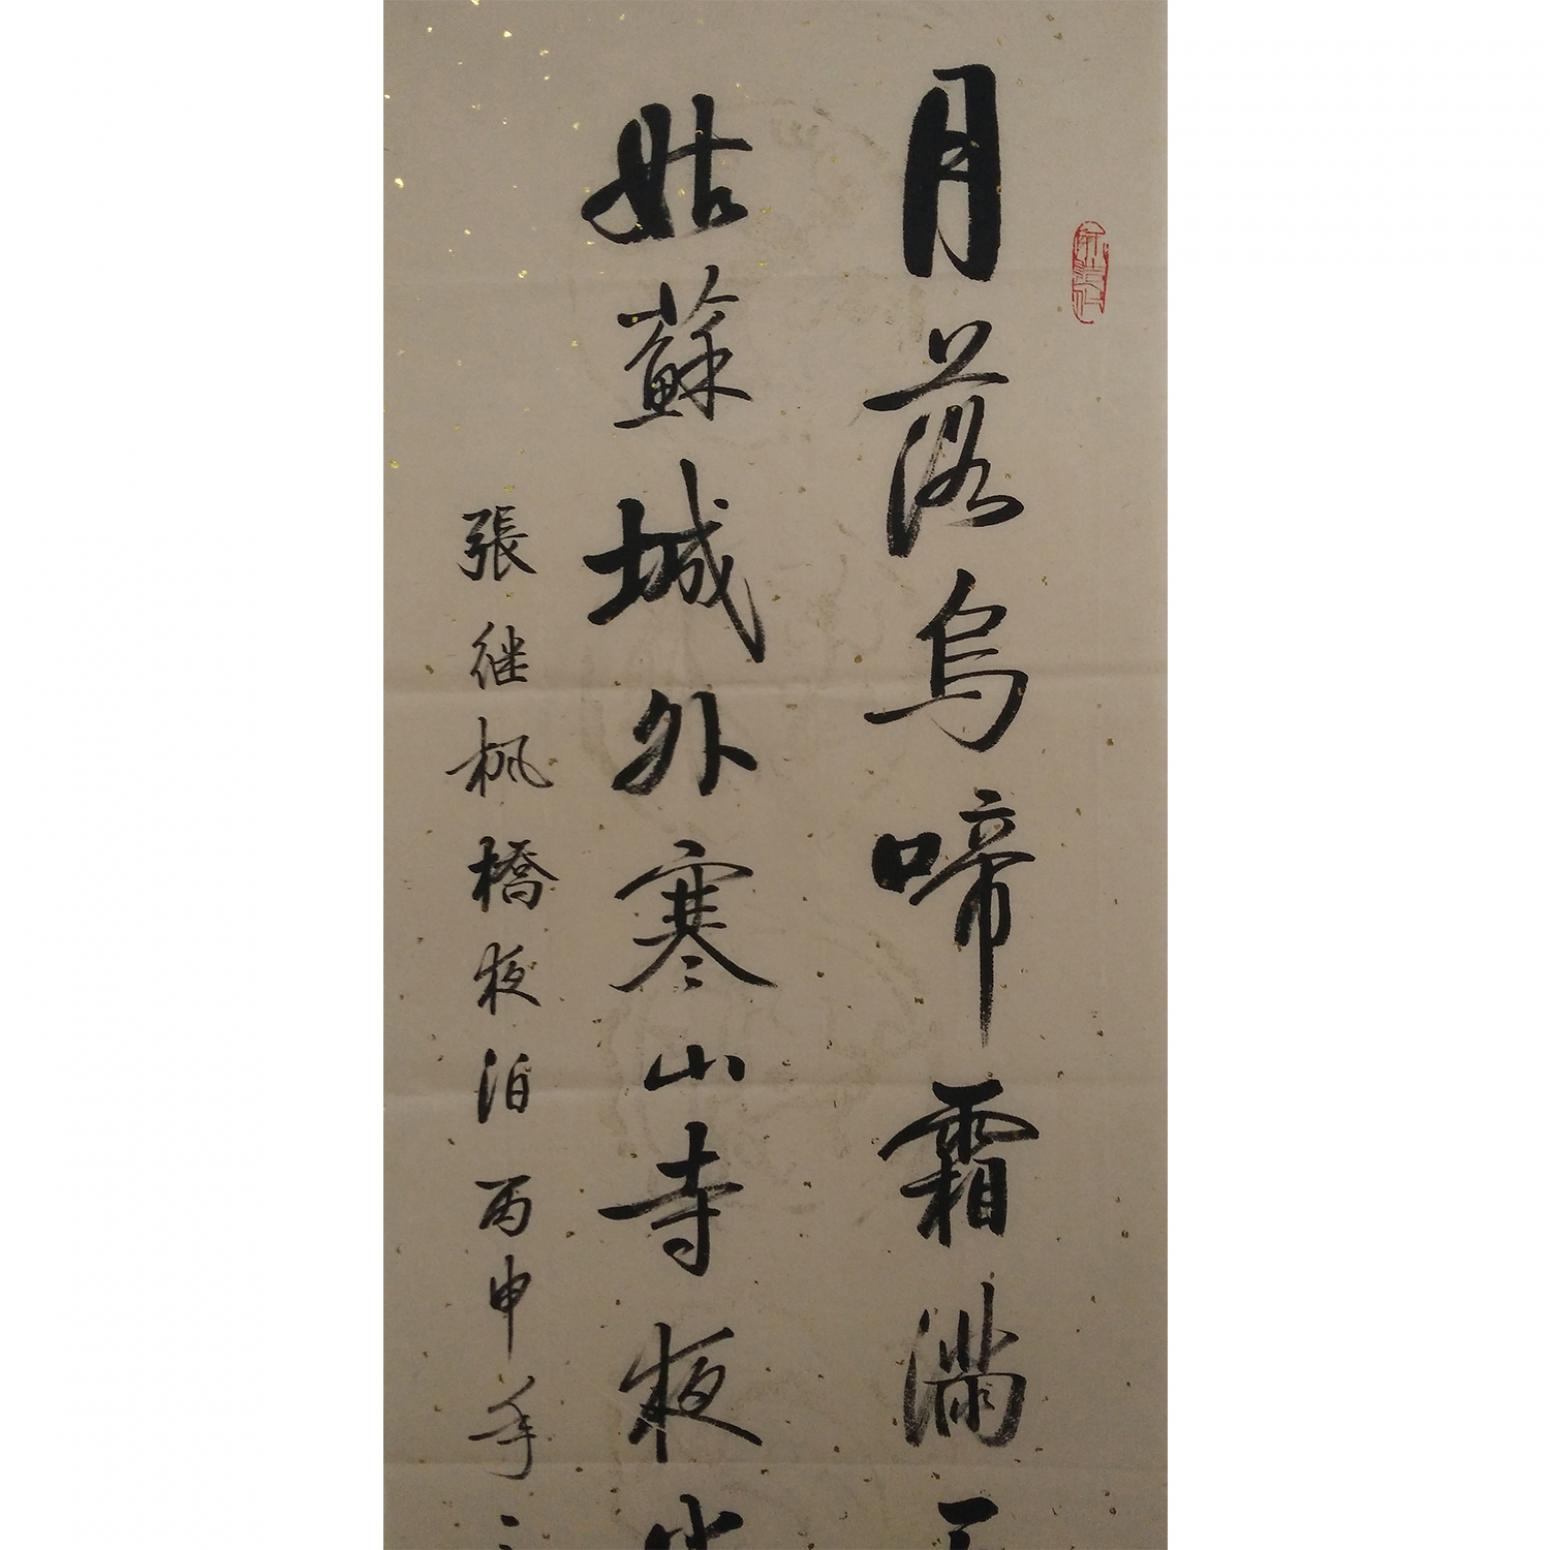 月落烏啼霜滿天
姑蘇城外寒山寺夜半
張继枫橋夜泊丙申年